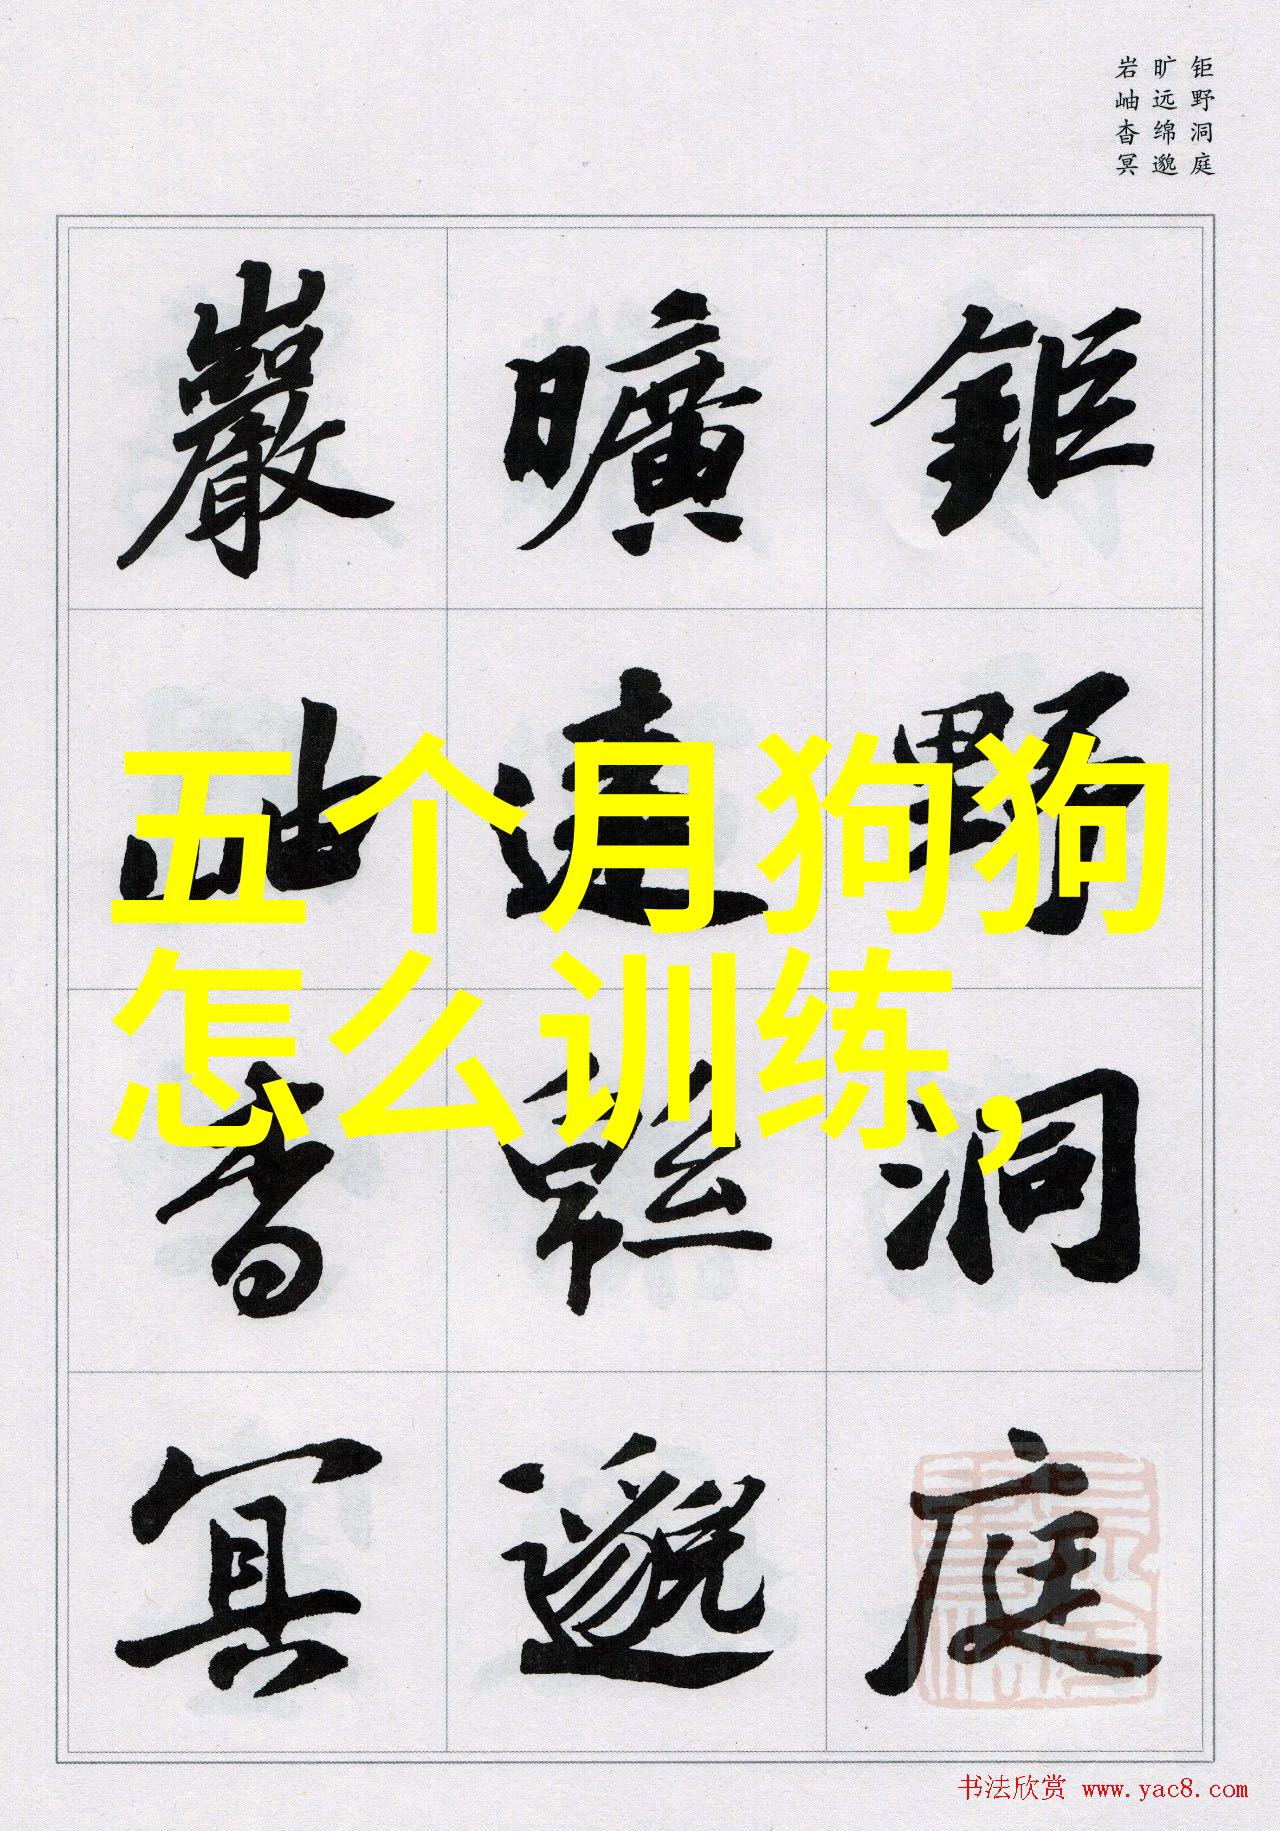 钜野洞庭
旷远绵邈
岩岫杳冥
鉅野洞庭
曠遠緜邈
巖岫杳冥
五个月狗狗
怎么训练,
书法欣赏 www.yac8.com